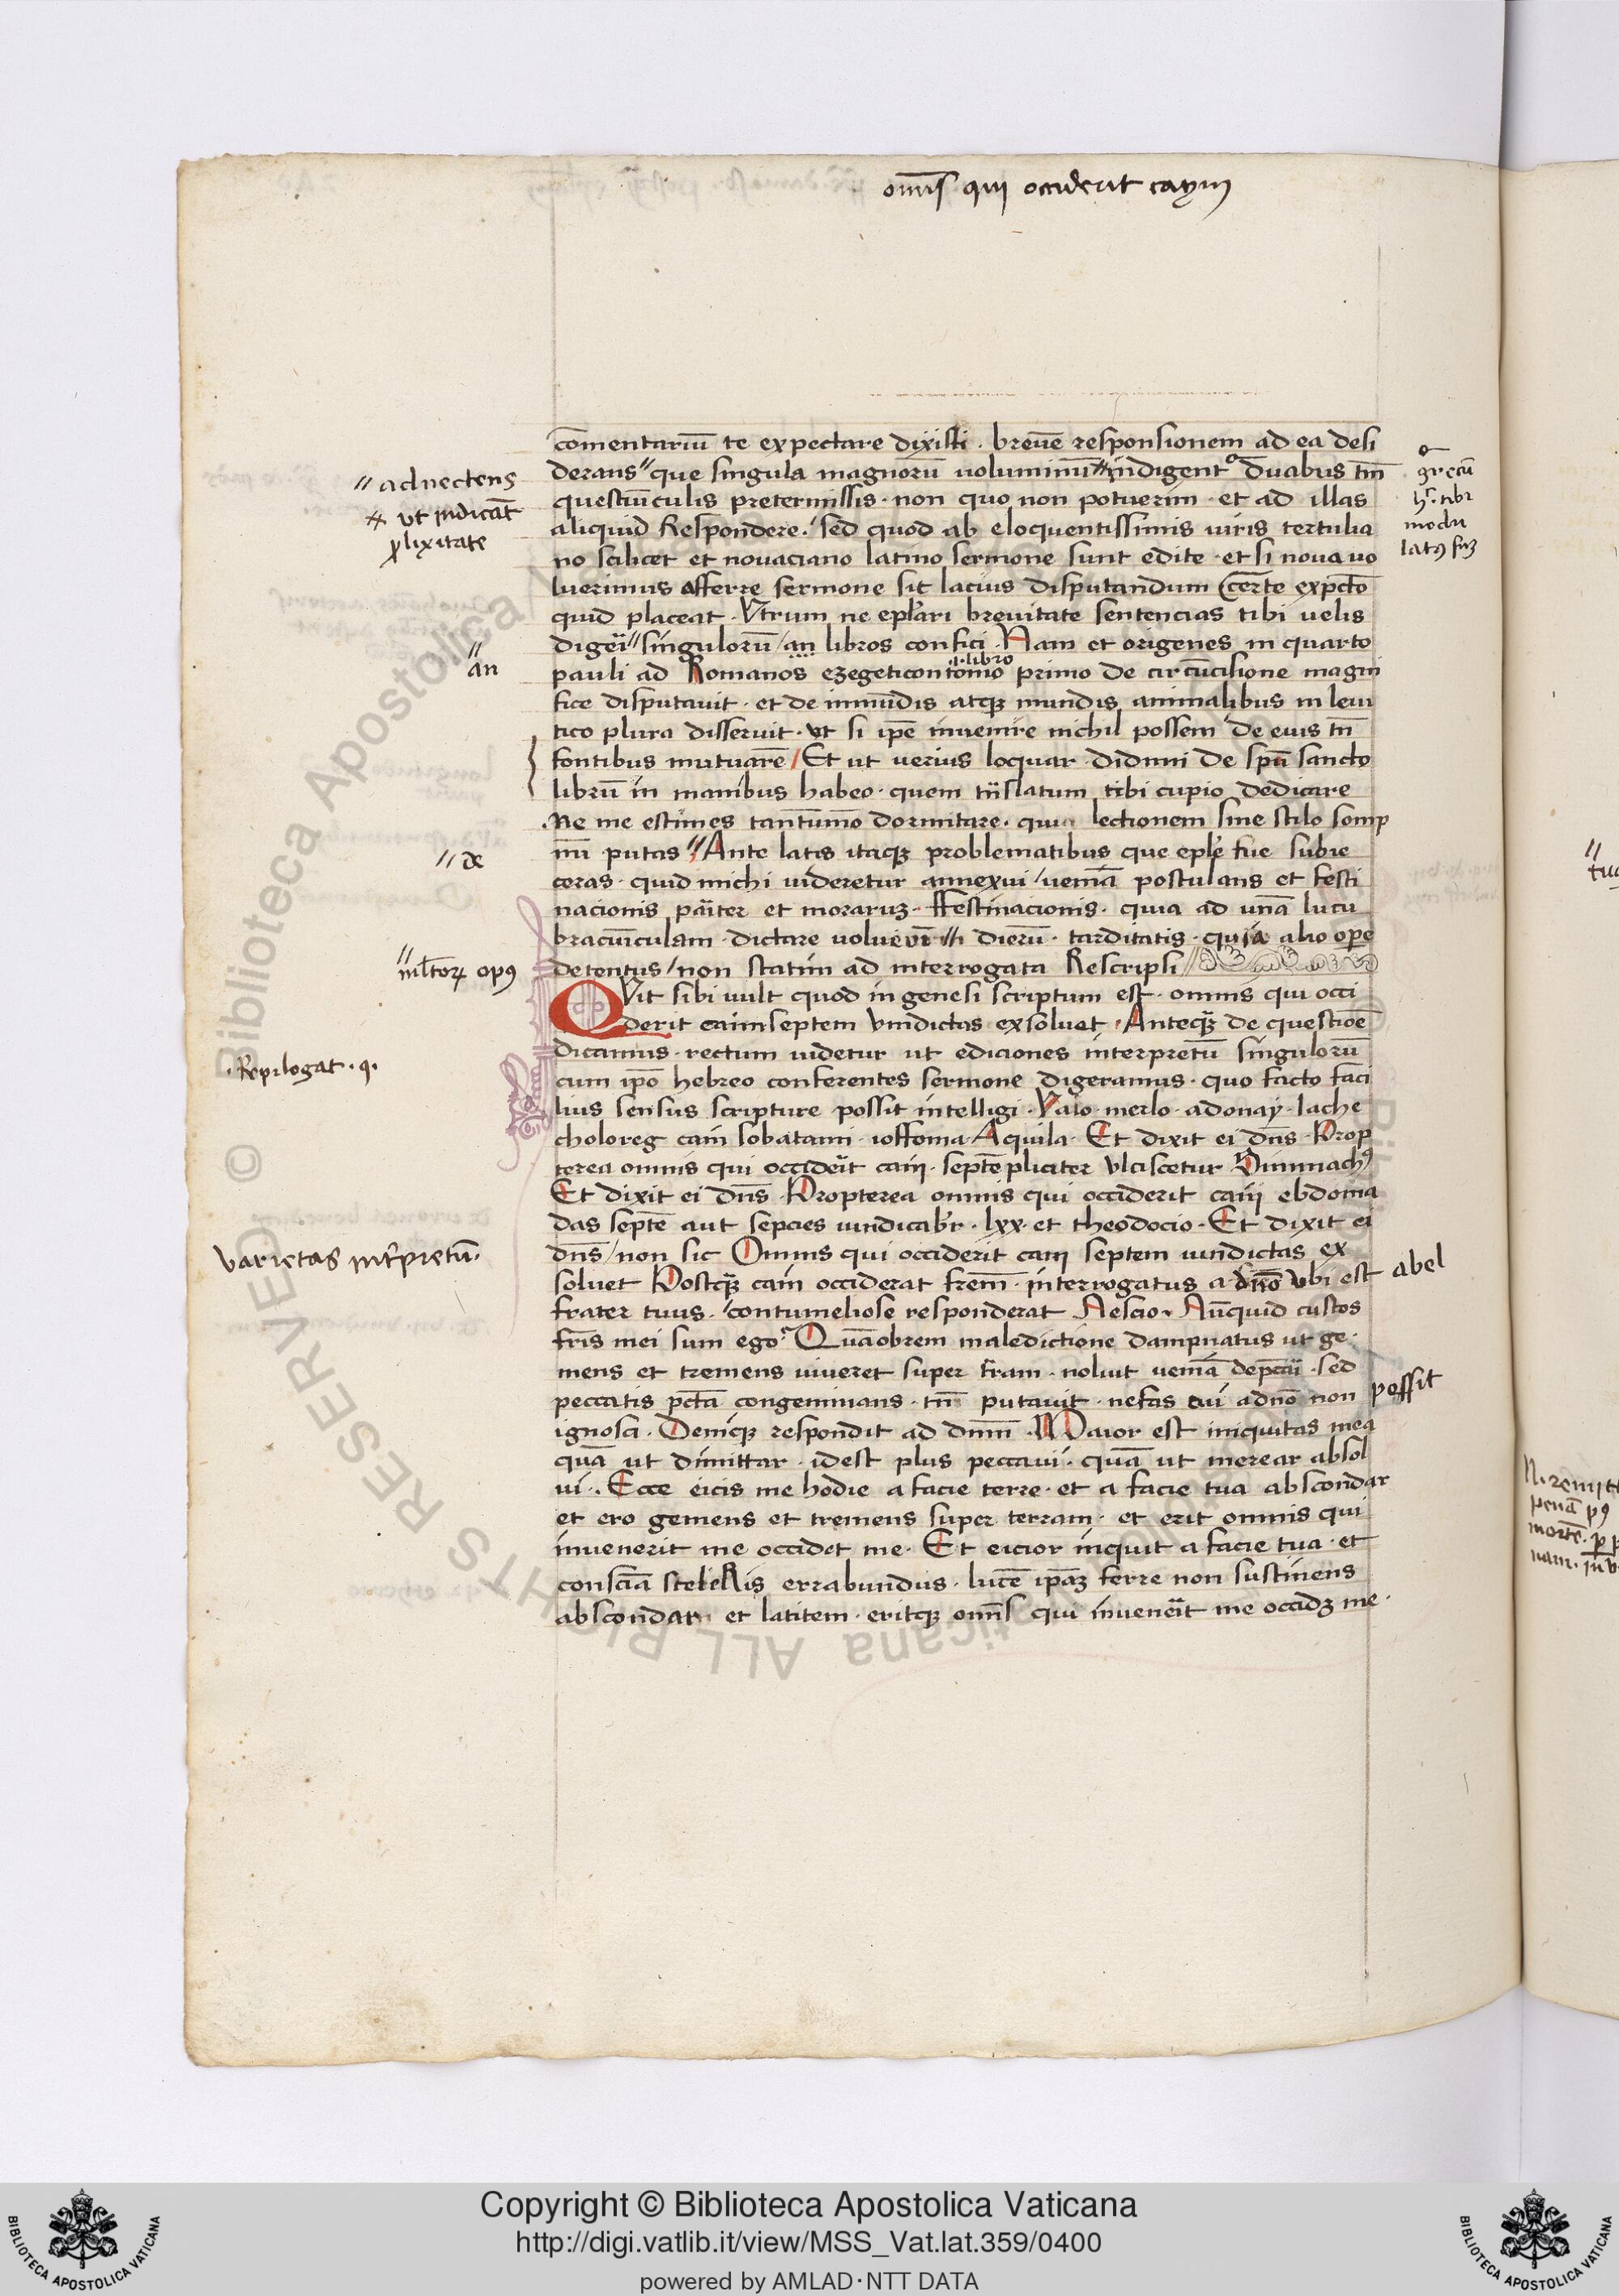 om̄is qui occiderit caym
com̄entariū te expectare dixisti · breuē responsionem ad ea desi
derans // que singula magnorū voluminū indigent duabus tm̄
questiūculis pretermissis · non quo non potuerim · et ad illas
aliquid Respondere · sed quod ab eloquentissimis viris tertulia
no scilicet et novaciano latino sermone sunt edite · et si noua vo
luerimus afferre sermone sit lacius disputandum Certe expcto
quid placeat · Vtrum ne eplari breuitate sentencias tibi velis
digeri // singulorū / an libros confici · Nam et origenes in quarto
.i. libro
pauli ad Romanos ezegeticon tomo primo de circūcisione magni
fice disputauit · et de inmūdis atqꝫ mundis animalibus in leui
tico plura disseruit · vt si ip̄e inuenire nichil possem de euis tn̄
fontibus mutuarē / Et ut verius loquar · didimi de sp̄u sancto
librū in manibus habeo · quem trāslatum tibi cupio dedicare
Ne me estimes tantūmo dormitare · quia lectionem sine stilo somp
nū putas // Ante latis itaqꝫ problematibus que eple tue subie
ceras · quid michi videretur annexui / ueniā postulans et festi
nacionis pariter et moraruꝫ · ffestinacionis · quia ad vnā lucu
braciūculam · dictare volui dierū · tarditatis · quia alio ope
detentus / non statim ad interrogata Rescripsi
QVit sibi uult quod in genesi scriptum est · omnis qui occi
derit caim septem vindictas exsoluet · Anteqꝫ de questioē
dicamus · rectum videtur ut ediciones interpretū singulorū
cum ip̄o hebreo conferentes sermone digeramus · quo facto faci
lius sensus scripture possit intelligi · Vaio · merlo · adonay · lache
choloreg cain sobatami · ioffoma Aquila · Et dixit ei dn̄s · Prop
terea omnis qui occiderit cain · septēpliciter vlciscetur Simmachꝰ
Et dixit ei dn̄s · Propterea omnis qui occiderit cain ebdoma
das septē aut sepcies vindicabr · lxx · et theodocio · Et dixit ei
dn̄s / non sic Omnis qui occiderit cain septem vindictas ex
soluet Postqꝫ cain occiderat frēm · interrogatus a dn̄o vbi est
frater tuus · contumeliose responderat Nescio · Nūquid custos
fr̄is mei sum ego · Quāobrem maledictione dampnatus ut ge
mens et tremens viueret super tr̄am · noluit ueniā dep̄cari · sed
peccatis pctā congeminans · tm̄ putauit · nefas cui a dn̄o non
ignosci · Deniqꝫ respondit ad dnm̄ · Maior est iniquitas mea
quā ut dimittar · idest plus peccaui · quā ut merear absol
ui · Ecce eicis me hodie a facie terre · et a facie tua abscondar
et ero gemens et tremens super terram · et erit omnis qui
inuenerit me occidet me · Et eicior inquit a facie tua · et
consciā sceleris errabundus · lucē ip̄aꝫ ferre non sustinens
abscondar et latitem · eritqꝫ omn̄s qui inuenerit me occidꝫ me ·
// adnectens
vt indicāt
plixitate
// an
// de
// mltorꝝ opꝰ
· Repilogat · q ·
varietas int̄pretū ·
grecū
hr̄ · tibi
modu
latꝰ suꝫ
abel
possit
Copyright © Biblioteca Apostolica Vaticana
http://digi.vatlib.it/view/MSS_Vat.lat.359/0400
powered by AMLAD·NTT DATA
BIBLIOTECA APOSTOLICA VATICANA
BIBLIOTECA APOSTOLICA VATICANA
© Biblioteca Apostolica Vaticana ALL RIGHTS RESERVED